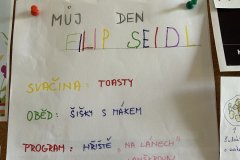 MŮJ DEN
FILIP SEIDL
SVAČINA: TOASTY
OBĚD: ŠIŠKY S MÁKEM
PROGRAM: HŘIŠTĚ "NA LÁNECH"